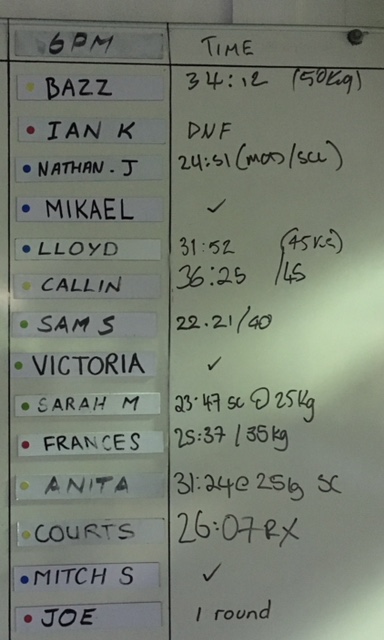 6PM TIME
BAZZ 34:12 (50Kg)
IAN K DNF
NATHAN.J 24:51 (MOD/SCL)
MIKAEL ✓
LLOYD 31:52 (45KG)
CALLIN 36:25 /45
SAM S 22.21/40
VICTORIA ✓
SARAH M 23:47 SC @ 25Kg
FRANCES 25:37 / 35kg
ANITA 31:24@ 25kg SC
COURTS 26:07 RX
MITCH S ✓
JOE 1 round